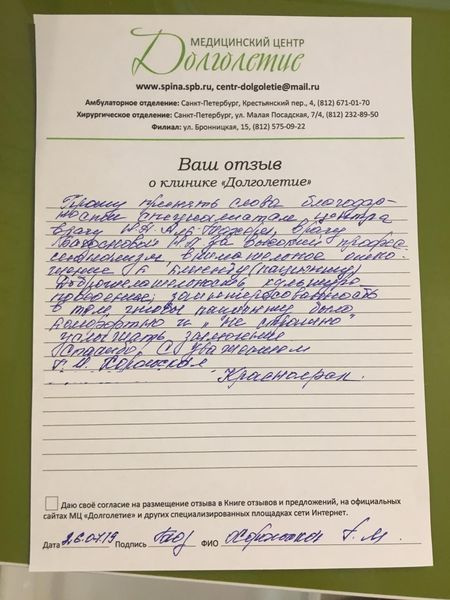 МЕДИЦИНСКИЙ ЦЕНТР
Долголетие
www.spina.spb.ru, centr-dolgoletie@mail.ru
Амбулаторное отделение: Санкт-Петербург, Крестьянский пер., 4, (812) 671-01-70
Хирургическое отделение: Санкт-Петербург, ул. Малая Посадская, 7/4, (812) 232-89-50
Филиал: ул. Бронницкая, 15, (812) 575-09-22
Ваш отзыв
о клинике «Долголетие»
Прошу принять слова благодар-
ности специалистам центра
врачу врачу
за высокий профес
сионализм, внимательное отно-
шение к клиенту (пациенту)
доброжелательность, культуру
поведения, заинтересованность
в том, чтобы пациенту было
комфортно и "не страшно"
услышать заключение
Спасибо. С уважением
Г.М.
Красноярск.
Даю своё согласие на размещение отзыва в Книге отзывов и предложений, на официальных
сайтах МЦ «Долголетие» и других специализированных площадках сети Интернет.
Дата 26.07.19 Подпись ФИО Г.М.